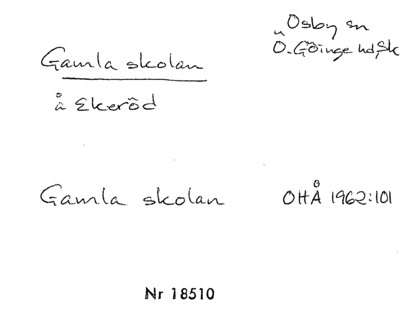 Osby sn
Ö. Göinge hd, Sk
Gamla skolan
å Ekeröd
Gamla skolan
OHÅ 1962:101
Nr 18510